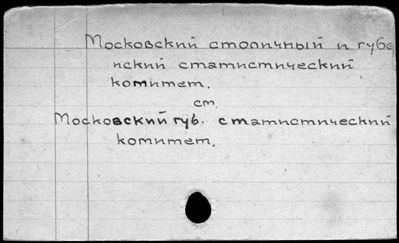 Московский столичный и губе
нский статистический
комитет.
см.
Московский губ. статистический
комитет.